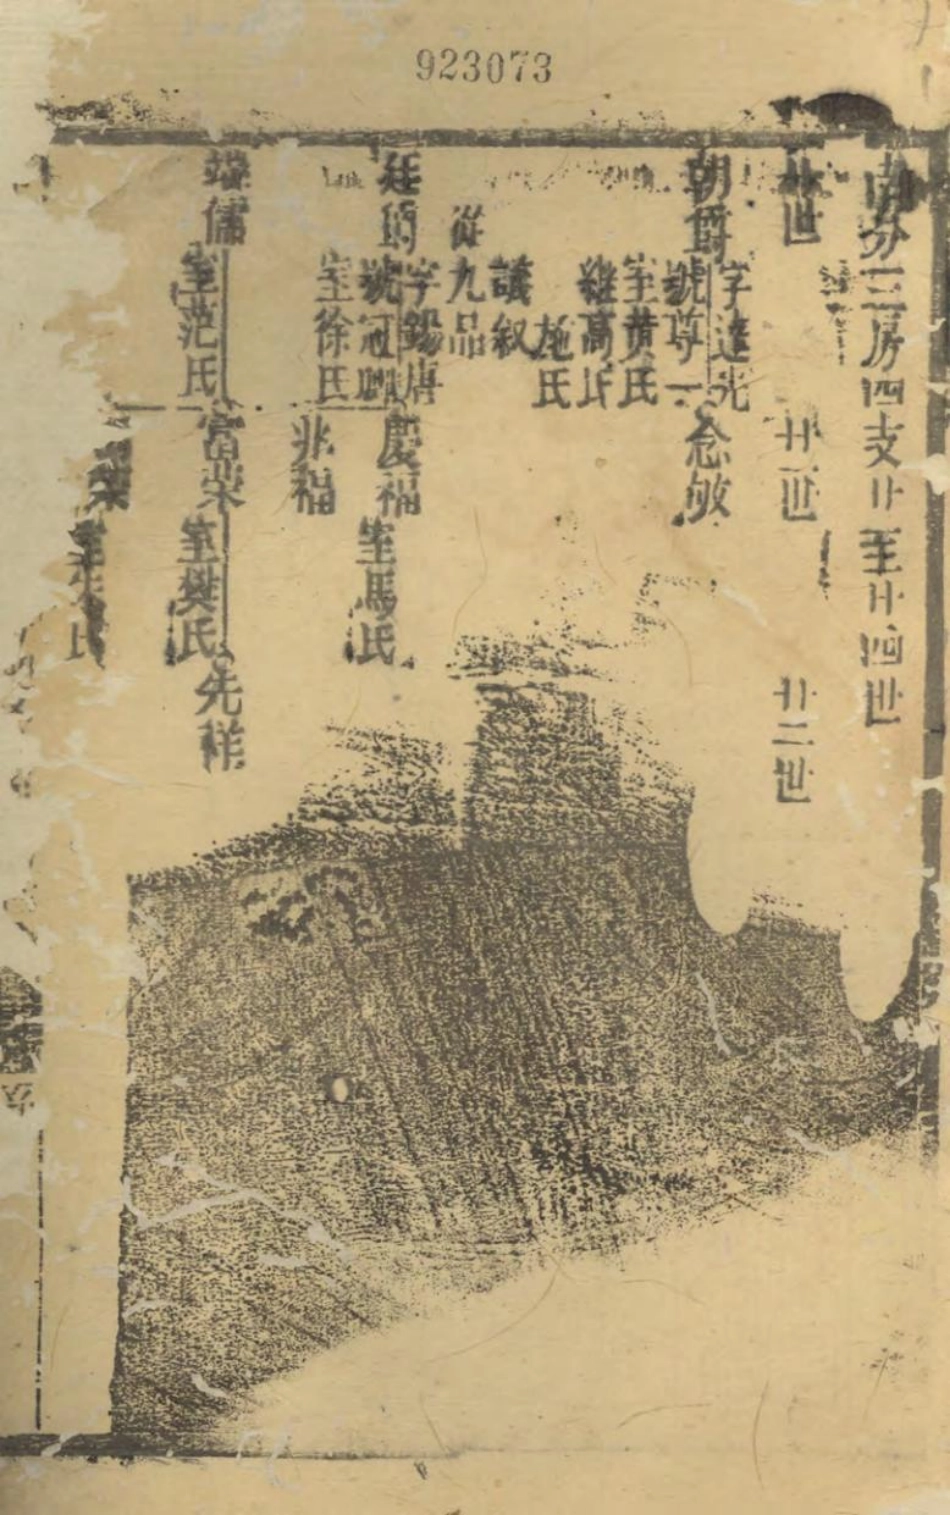 923073
南分三房四支廿至廿四世
廿世
廿一世
廿二世
朝爵
字達光
號尊一
室黃氏
繼高氏
施氏
念敂
議叙
從九品
廷爵
字錫唐
號冠卿
室徐氏
慶福
室馬氏
兆福
瑞儒
室范氏
富榮
室樊氏
先祥
榮
氏